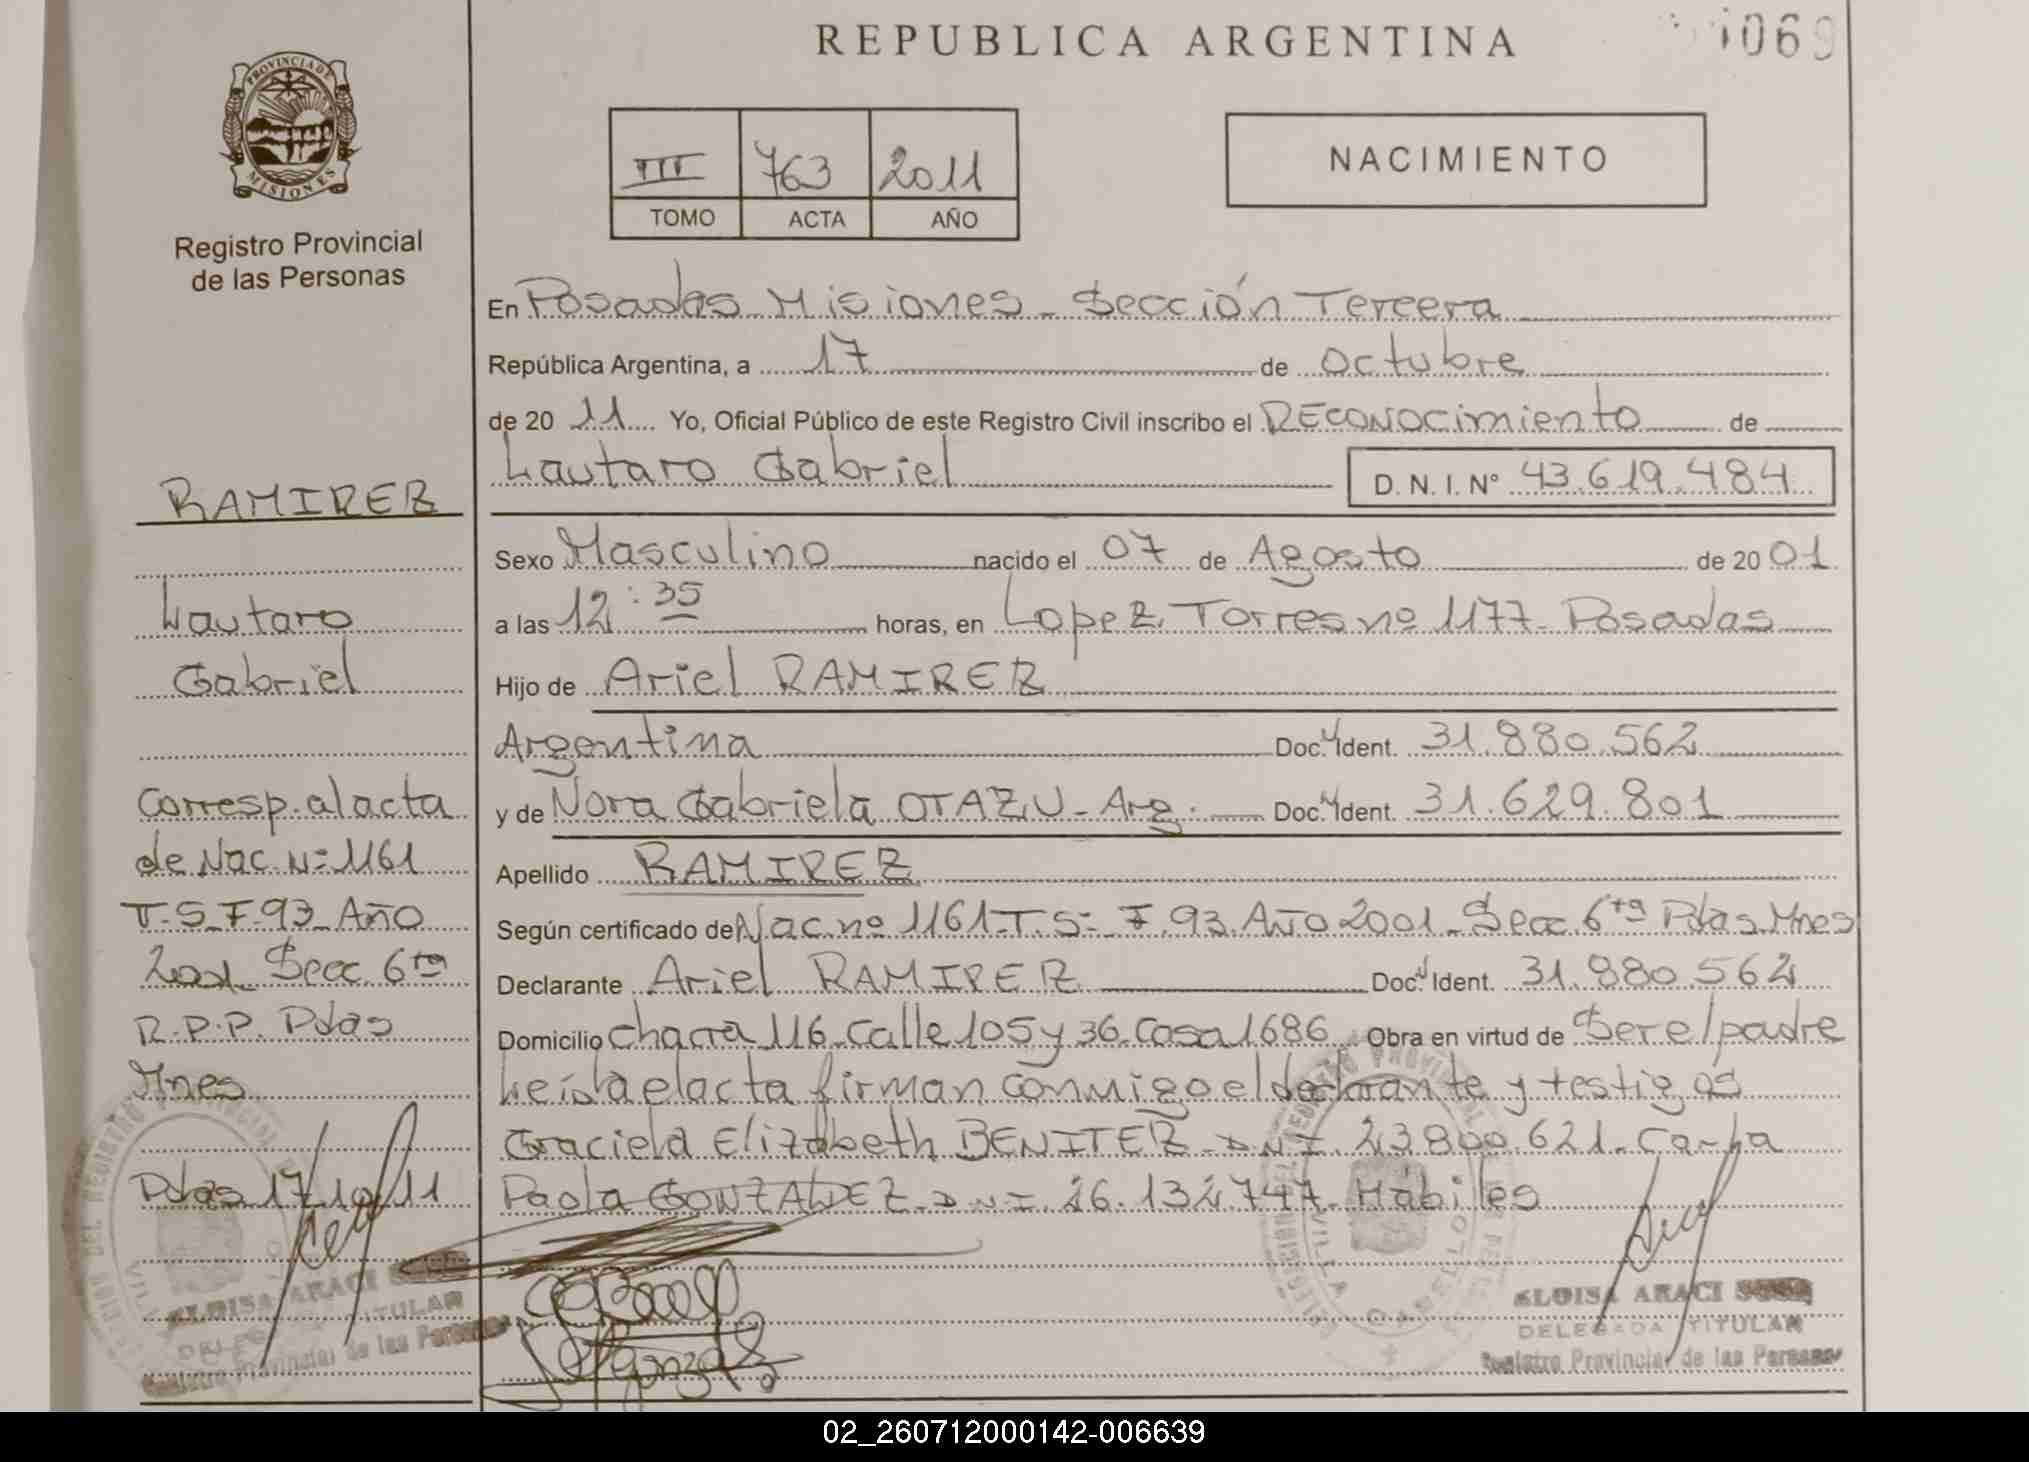 REPUBLICA ARGENTINA
1069
PROVINCIA DE
MISIONES
Registro Provincial
de las Personas
III 763 2011
TOMO ACTA AÑO
NACIMIENTO
En Posadas Misiones - Sección Tercera
República Argentina, a 17 de octubre
de 20 11 Yo, Oficial Público de este Registro Civil inscribo el RECONOCIMIENTO de
Lautaro Gabriel D. N. I. N° 43.619.484
Sexo Masculino nacido el 07 de Agosto de 20 01
a las 12:35 horas, en Lopez Torres nº 1177 - Posadas
Hijo de Ariel RAMIREZ
Argentina Doc. Ident. 31.880.562
y de Nora Gabriela OTAZU - Arg. Doc. Ident. 31.629.801
Apellido RAMIREZ
Según certificado de Nac. nº 1161 - T. 5 - F. 93 Año 2001 - Secc. 6ta Pdas Mnes
Declarante Ariel RAMIREZ Doc. Ident. 31.880.562
Domicilio chacra 116 - Calle 105 y 36 - Casa 1686 Obra en virtud de Ser el padre
Leída el acta firman conmigo el declarante y testigos
Graciela Elizabeth BENITEZ - D.N.I. 23.800.621 - Carla
Paola GONZALEZ - D.N.I. 26.132.747 - Habiles
RAMIREZ
Lautaro
Gabriel
Corresp. al acta
de Nac. Nº 1161
T. 5 - F. 93 - Año
2001 - Secc. 6ta
R.P.P. Pdas
Mnes
Pdas 17/10/11
ELOISA ARACI
TITULAR
Registro Provincial de las Personas
ELOISA ARACI
DELEGADA TITULAR
Registro Provincial de las Personas
02_260712000142-006639